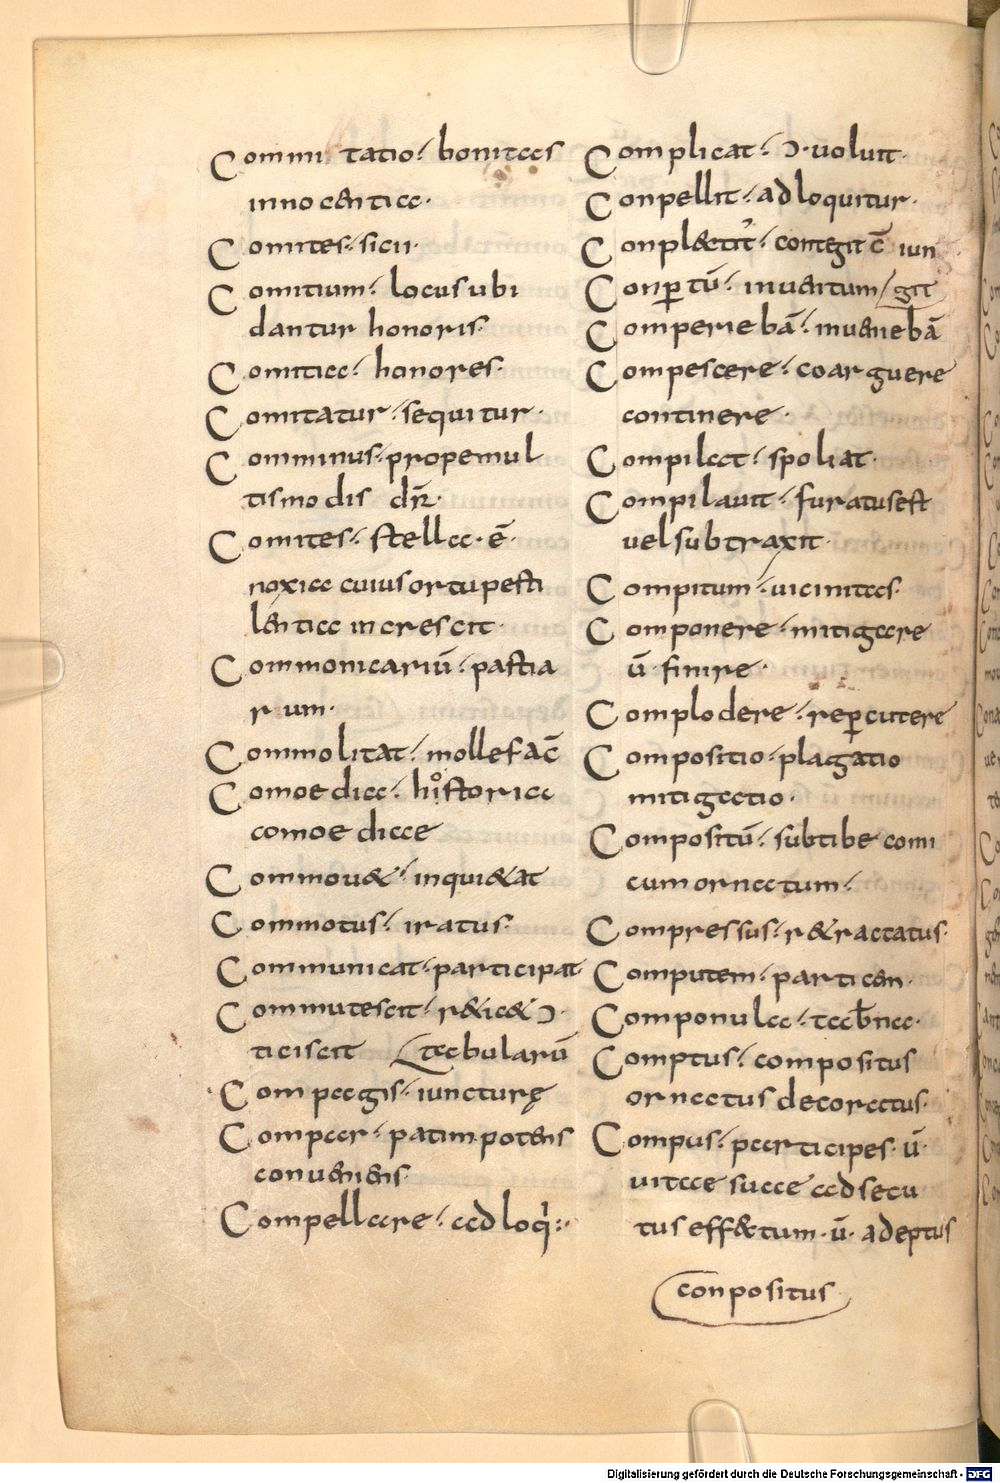 Commi tatio· bonitas
innocentia·
Comites· sicii·
Comitium· locus ubi
dantur honoris·
Comitia· honores·
Comitatur· sequitur·
Comminus· prope mul
tis modis dr̄·
Comites· stella· ē·
noxia cuius ortu pesti
lentia increscit·
Commonicariū· pastia
rum·
Commolitat· mollefac̄
Comoedia· historia
comoediae
Commou&· inqui&at
Commotus· iratus·
Communicat· participat·
Commutescit· r&ic& ɔ·
ticiscit tabularū
Compagis· iuncturę
Compar· patimpotens
conueniens·
Compellare· adloqi·
Complicat· ɔ·uoluit·
Conpellit· adloquitur·
Conpl&tit· contegit c̄ iun
Conꝑtū· inuentum git
Comperiebā· inueniebā
Compescere· coarguere
continere·
Compilat· spoliat·
Compilauit· furatus est
uel subtraxit·
Compitum· uicinitas·
Componere· mitigare
ū· finire·
Complodere· reꝑcutere
Compositio· plagatio
mitigatio·
Compositū· subtibe comi
cum ornatum·
Compressus· r&ractatus·
Computem· participen·
Componula· tab̄na·
Comptus· compositus
ornatus decoratus·
Compus· participes· ū·
uitae suae adsecu
tus eff&tum· ū· adeptus
conpositus
Digitalisierung gefördert durch die Deutsche Forschungsgemeinschaft - DFG